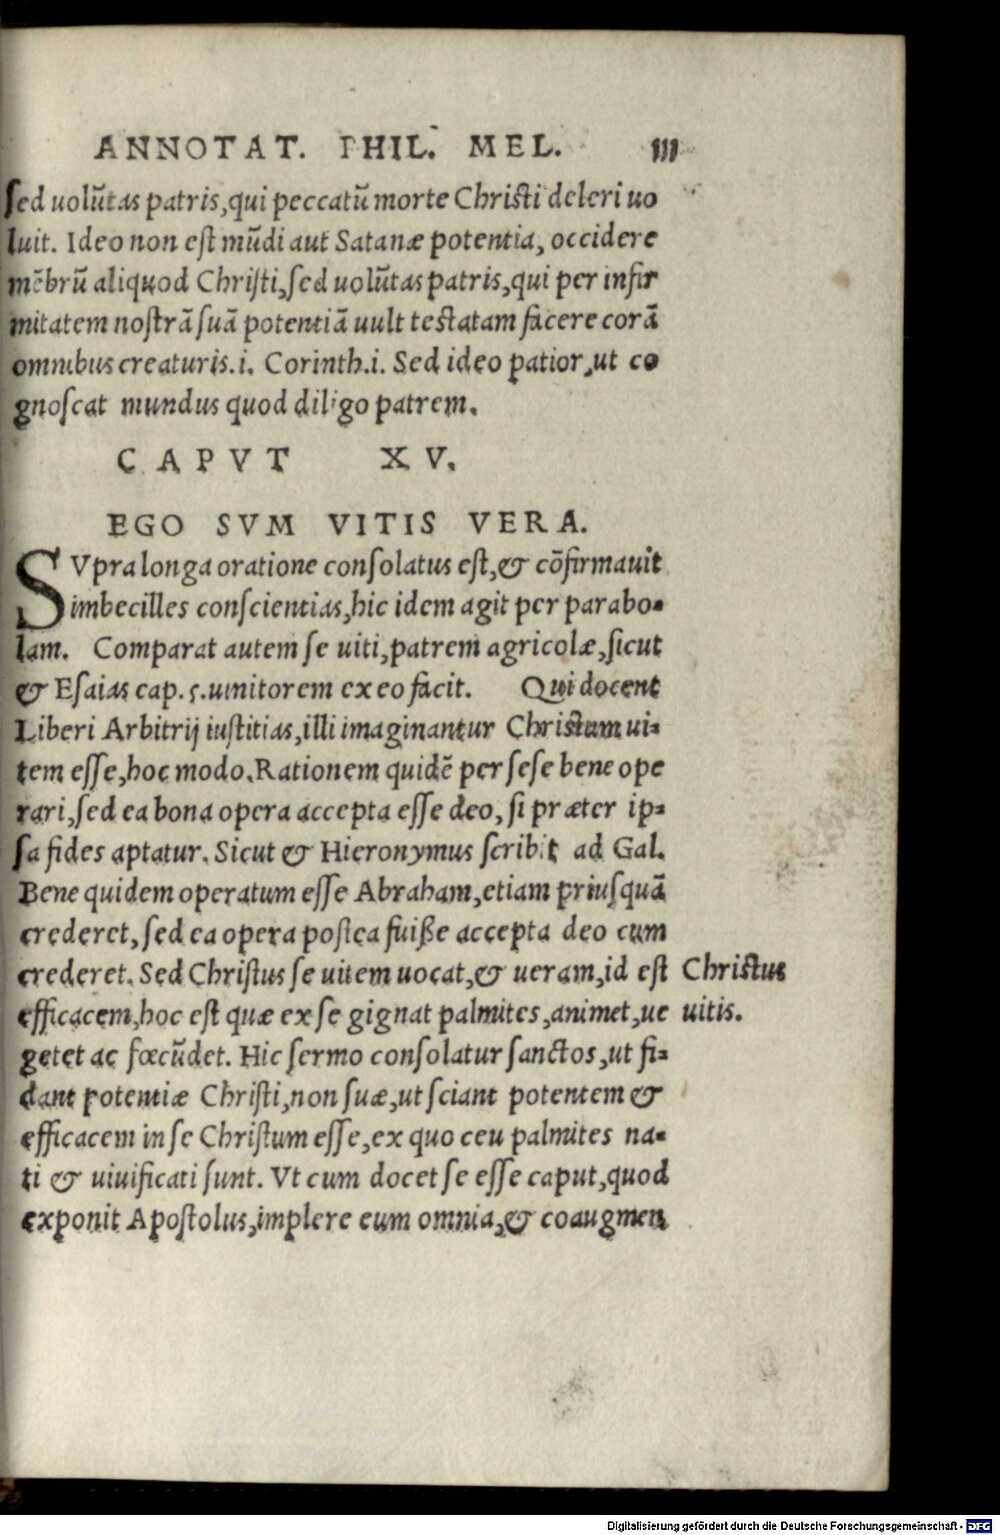 ANNOTAT. PHIL. MEL. 111
sed uolūtas patris, qui peccatū morte Christi deleri uo
luit. Ideo non est mūdi aut Satanæ potentia, occidere
mēbrū aliquod Christi, sed uolūtas patris, qui per infir
mitatem nostrā suā potentiā uult testatam facere corā
omnibus creaturis. i. Corinth. i. Sed ideo patior, ut co
gnoscat mundus quod diligo patrem.
CAPVT XV.
EGO SVM VITIS VERA.
SVpra longa oratione consolatus est, & cōfirmauit
imbecilles conscientias, hic idem agit per parabo-
lam. Comparat autem se uiti, patrem agricolæ, sicut
& Esaias cap. 5. uinitorem ex eo facit. Qui docent
Liberi Arbitrij iustitias, illi imaginantur Christum ui-
tem esse, hoc modo. Rationem quidē per sese bene ope
rari, sed ea bona opera accepta esse deo, si præter ip-
sa fides aptatur. Sicut & Hieronymus scribit ad Gal.
Bene quidem operatum esse Abraham, etiam priusquā
crederet, sed ea opera postea fuiße accepta deo cum
crederet. Sed Christus se uitem uocat, & ueram, id est
Christus
efficacem, hoc est quæ ex se gignat palmites, animet, ue
uitis.
getet ac fœcūdet. Hic sermo consolatur sanctos, ut fi-
dant potentiæ Christi, non suæ, ut sciant potentem &
efficacem in se Christum esse, ex quo ceu palmites na-
ti & uiuificati sunt. Vt cum docet se esse caput, quod
exponit Apostolus, implere eum omnia, & coaugmen
Digitalisierung gefördert durch die Deutsche Forschungsgemeinschaft - DFG